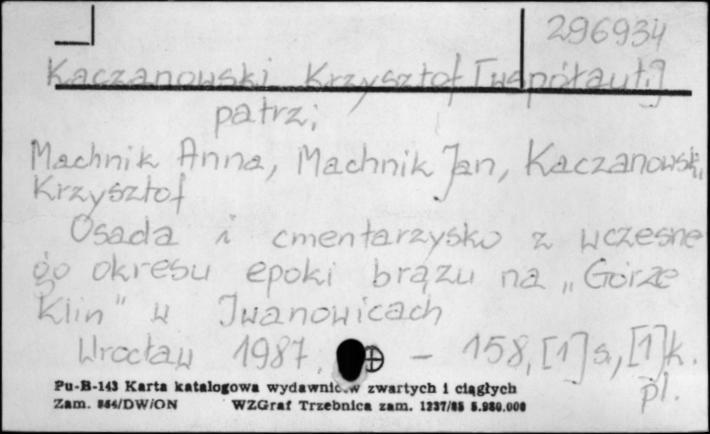 296934
Kaczanowski Krzysztof [współaut.]
patrz:
Machnik Anna, Machnik Jan, Kaczanowski
Krzysztof
Osada i cmentarzysko z wczesne
go okresu epoki brązu na „Górze
Klin" w Iwanowicach
Wrocław 1987. – 158, [1] s., [1] k.
pl.
Pu-B-143 Karta katalogowa wydawnictw zwartych i ciągłych
Zam. 854/DW/ON WZGraf Trzebnica zam. 1237/85 5.980.000